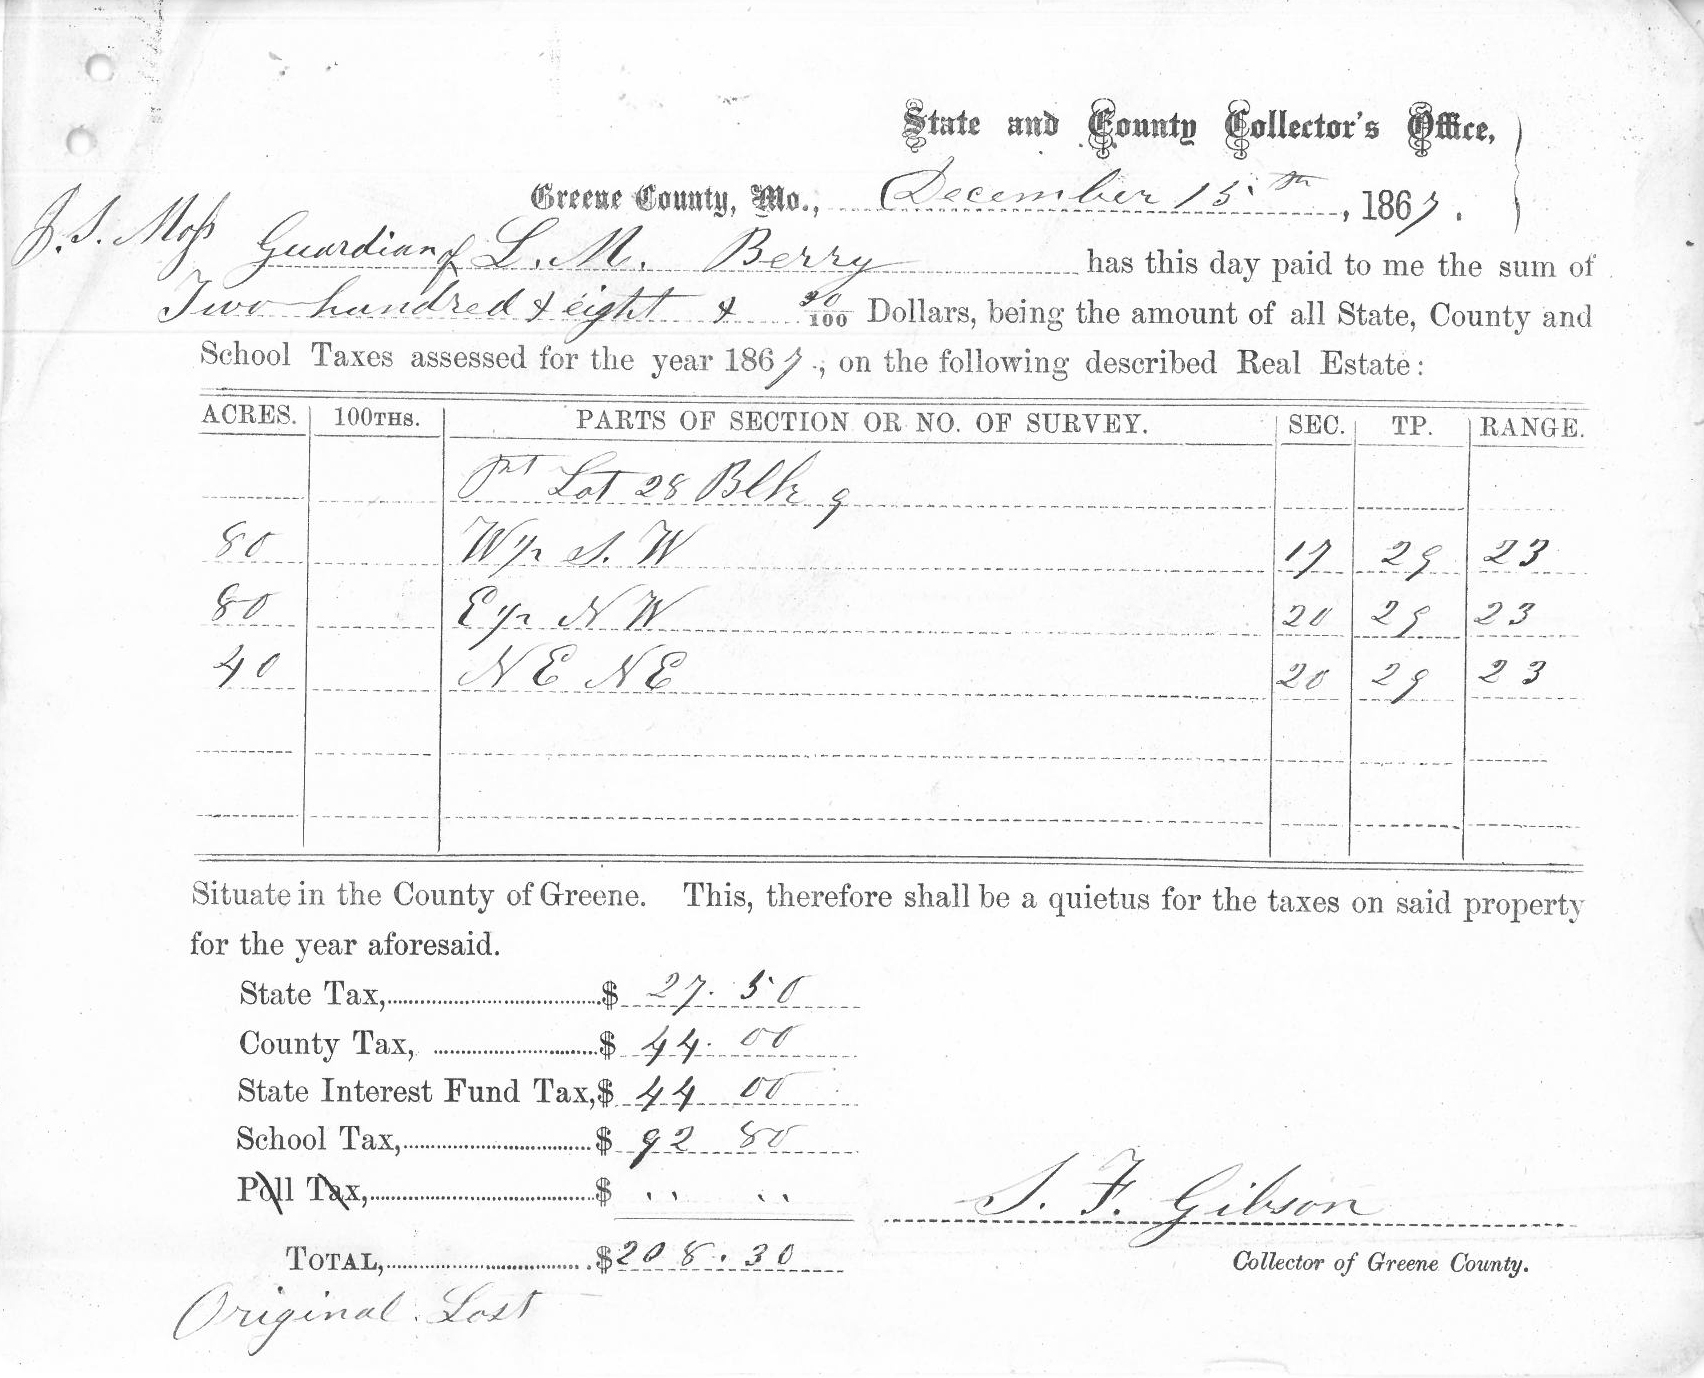 State and County Collector's Office,
Greene County, Mo., December 15th, 1867.
J. S. Moss Guardian of L. M. Berry has this day paid to me the sum of
Two hundred & eight & 30/100 Dollars, being the amount of all State, County and
School Taxes assessed for the year 1867., on the following described Real Estate:
ACRES. 100THS. PARTS OF SECTION OR NO. OF SURVEY. SEC. TP. RANGE.
Pt Lot 28 Blk 9
80 W½ S. W 17 29 23
80 E½ N W 20 29 23
40 N E N E 20 29 23
Situate in the County of Greene. This, therefore shall be a quietus for the taxes on said property
for the year aforesaid.
State Tax, $ 27.50
County Tax, $ 44.00
State Interest Fund Tax, $ 44 00
School Tax, $ 92 80
Poll Tax, $ " "
S. F. Gibson
TOTAL, $208.30
Collector of Greene County.
Original Lost